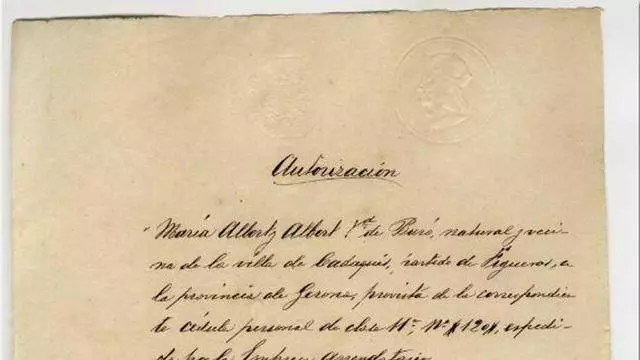 Autorización
"María Albert y Albert Vda de Buró, natural y veci-
na de la villa de Cadaqués, partido de Figueras, en
la provincia de Gerona, provista de la correspondien
te cédula personal de clase 11ª, Nº 120, expedi-
da por la Empresa Arrendataria